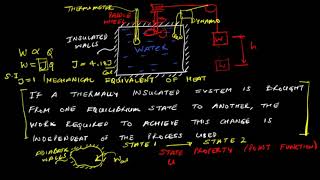 THERMOMETER
PADDLE WHEEL
DYNAMO
INSULATED WALLS
WATER
h
W ∝ Q
W = J Q
J = 4.18 J
S.I J=1 MECHANICAL EQUIVALENT OF HEAT
IF A THERMALLY INSULATED SYSTEM IS BROUGHT
FROM ONE EQUILIBRIUM STATE TO ANOTHER, THE
WORK REQUIRED TO ACHIEVE THIS CHANGE IS
INDEPENDENT OF THE PROCESS USED
STATE 1 → STATE 2
WALLS
STATE PROPERTY (POINT FUNCTION)
U